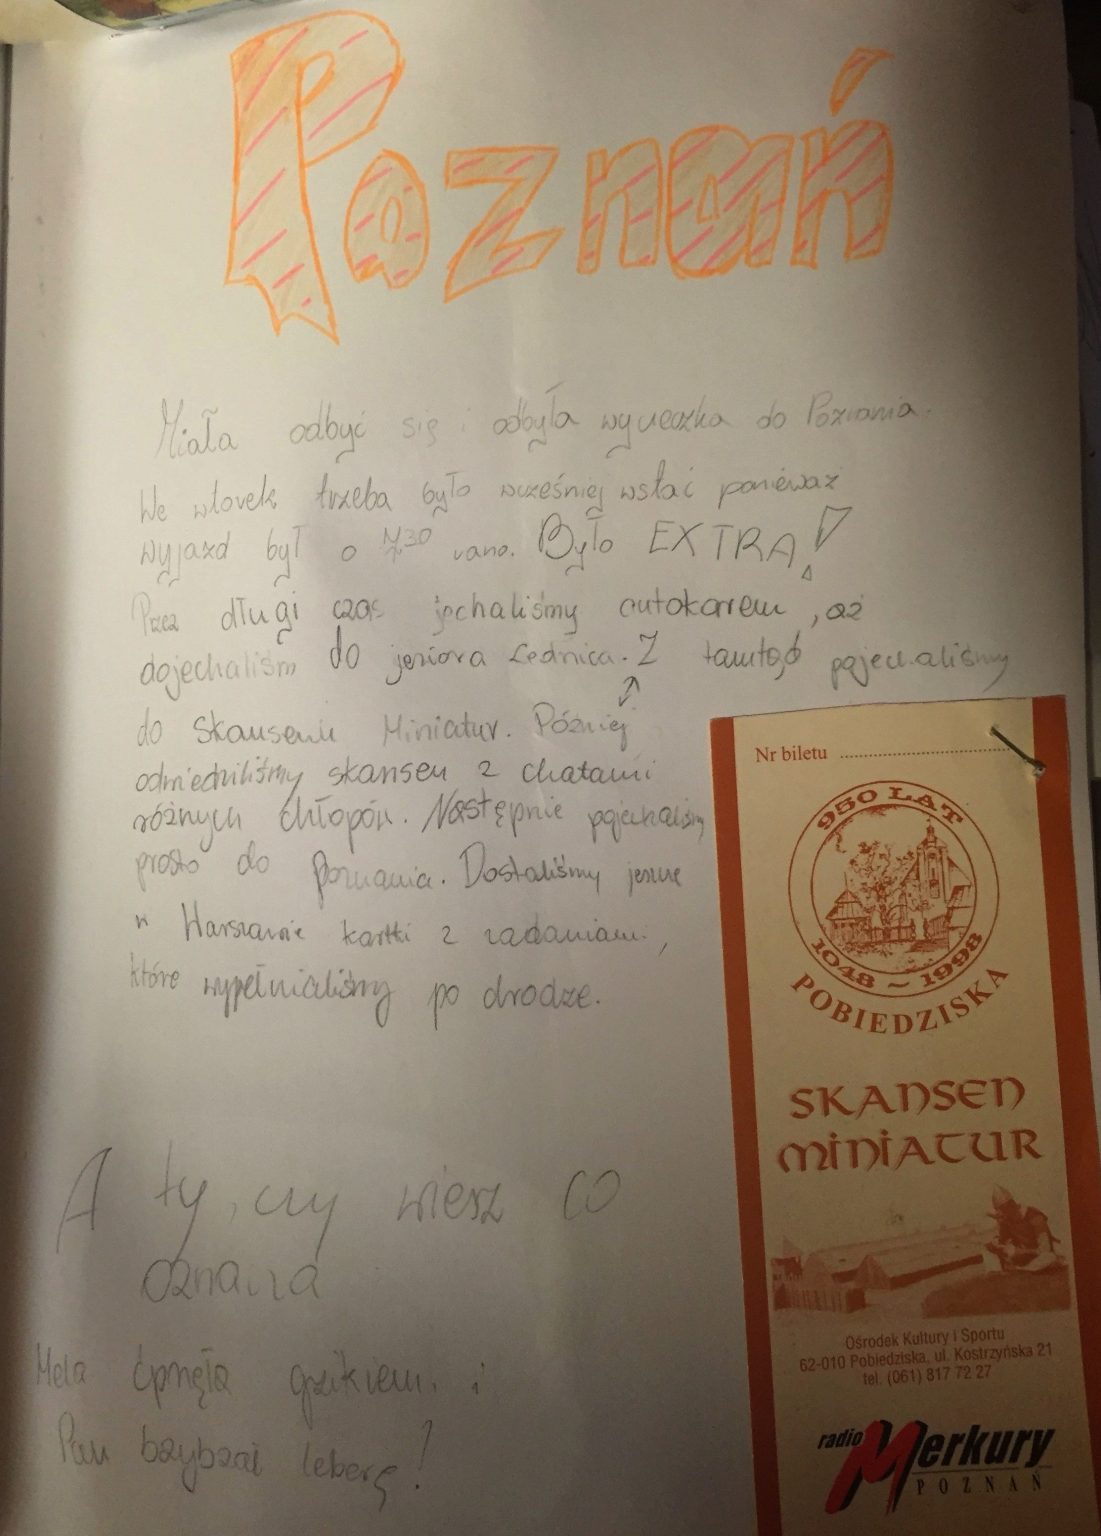 Poznań
Miała odbyć się i odbyła wycieczka do Poznania.
We wtorek trzeba było wcześniej wstać ponieważ
wyjazd był o 7³⁰ rano. Było EXTRA!
Przez długi czas jechaliśmy autokarem, aż
dojechaliśm do jeziora Lednica. Z tamtąd pojechaliśmy
do Skansenu Miniatur. Później
odwiedziliśmy skansen z chatami
różnych chłopów. Następnie pojechaliśmy
prosto do Poznania. Dostaliśmy jeszcze
w Warszawie kartki z zadaniami,
które wypełnialiśmy po drodze.
A ty, czy wiesz co
oznacza
Mela ćpnęła gzikiem i
Pan bzybzał leberę!
Nr biletu
950 LAT
1048 ~ 1998
POBIEDZISKA
SKANSEN
MINIATUR
Ośrodek Kultury i Sportu
62-010 Pobiedziska, ul. Kostrzyńska 21
tel. (061) 817 72 27
radio Merkury
POZNAŃ